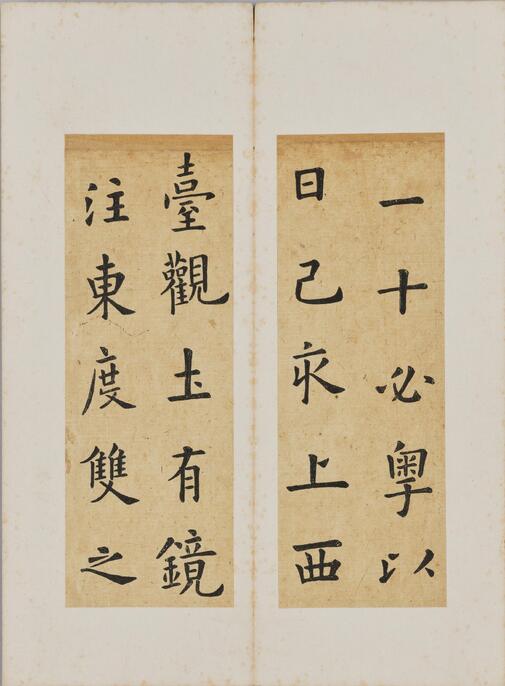 一十必粵以
日己上西
臺觀圡有鏡
注東度雙之